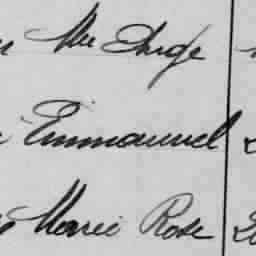 Ange
Emmanuel
Marie Rose